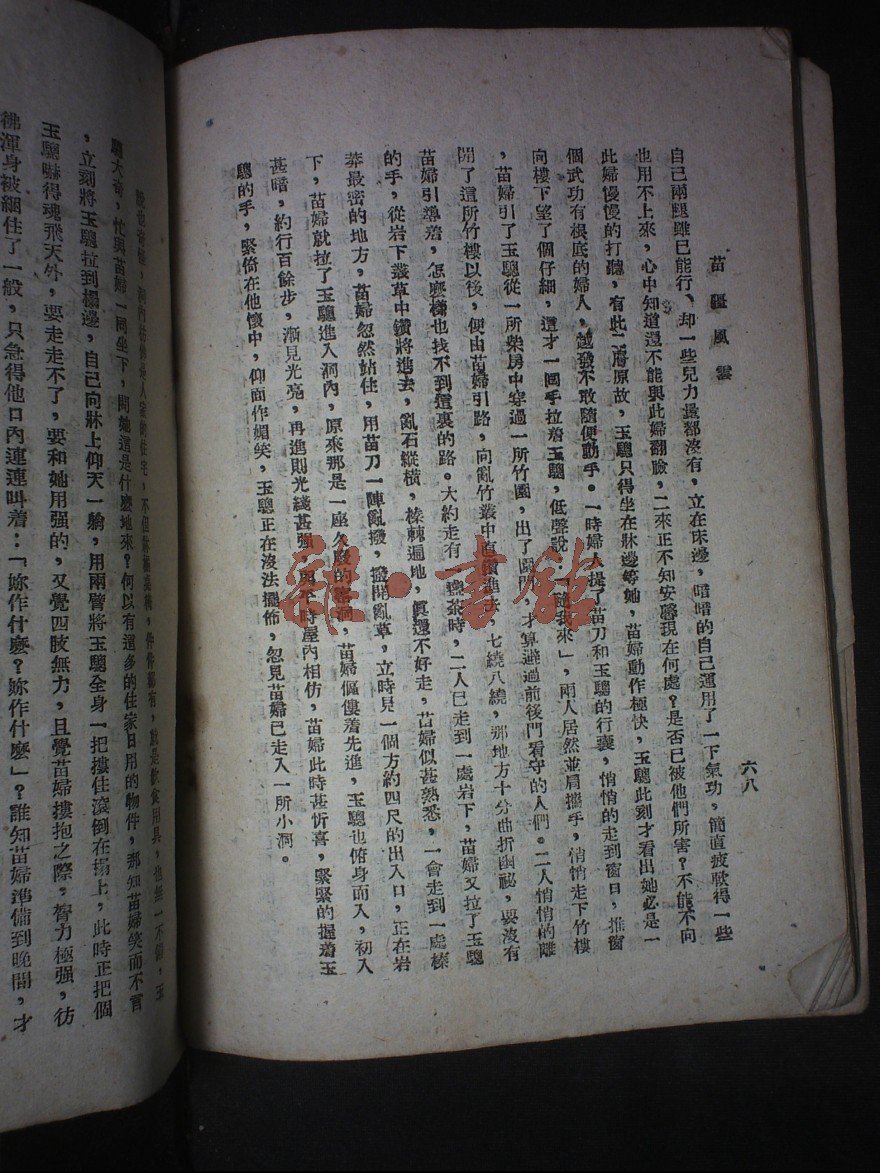 苗疆風雲
六八
自己兩腿雖已能行、却一些兒力量都沒有，立在床邊，暗暗的自己運用了一下氣功，簡直疲軟得一些
也用不上來，心中知道還不能與此婦翻臉，二來正不知安醫現在何處？是否已被他們所害？不能不向
此婦慢慢的打聽，有此二層原故，玉驄只得坐在牀邊等她，苗婦動作極快，玉驄此刻才看出她必是一
個武功有根底的婦人，越發不敢隨便動手。一時婦人提了苗刀和玉驄的行囊，悄悄的走到窗口，推窗
向樓下望了個仔細，這才一個手拉着玉驄，低聲說：「隨我來」，兩人居然並肩攜手，悄悄走下竹樓
，苗婦引了玉驄從一所柴房中穿過一所竹園，出了園門，才算避過前後門看守的人們。二人悄悄的離
開了這所竹樓以後，便由苗婦引路，向亂竹叢中直鑽進去，七繞八繞，那地方十分曲折幽祕，要沒有
苗婦引導着，怎麼樣也找不到這裏的路。大約走有一盞茶時，二人已走到一處岩下，苗婦又拉了玉驄
的手，從岩下叢草中鑽將進去，亂石縱橫，榛棘遍地，眞還不好走，苗婦似甚熟悉，一會走到一處榛
莽最密的地方，苗婦忽然站住，用苗刀一陣亂撥，撥開亂草，立時見一個方約四尺的出入口，正在岩
下，苗婦就拉了玉驄進入洞內，原來那是一座久廢的 洞，苗婦傴僂着先進，玉驄也俯身而入，初入
甚暗，約行百餘步，漸見光亮，再進則光綫甚強，與平時屋內相仿，苗婦此時甚忻喜，緊緊的握着玉
驄的手，緊倚在他懷中，仰面作媚笑，玉驄正在沒法擺佈，忽見苗婦已走入一所小洞。
說也奇怪，洞內 人家的住宅，不但牀榻 ，件件都有，就是飲食用具，也無一不備，玉
驄大奇，忙與苗婦一同坐下，問她這是什麼地來？何以有這多的住家日用的物件，那知苗婦笑而不言
，立刻將玉驄拉到榻邊，自己向牀上仰天一躺，用兩臂將玉驄全身一把摟住滾倒在榻上，此時正把個
玉驄嚇得魂飛天外，要走走不了，要和她用强的，又覺四肢無力，且覺苗婦摟抱之際，膂力極强，彷
彿渾身被綑住了一般，只急得他口內連連叫着：「妳作什麼？妳作什麼」？誰知苗婦準備到晚間，才
雜·書館